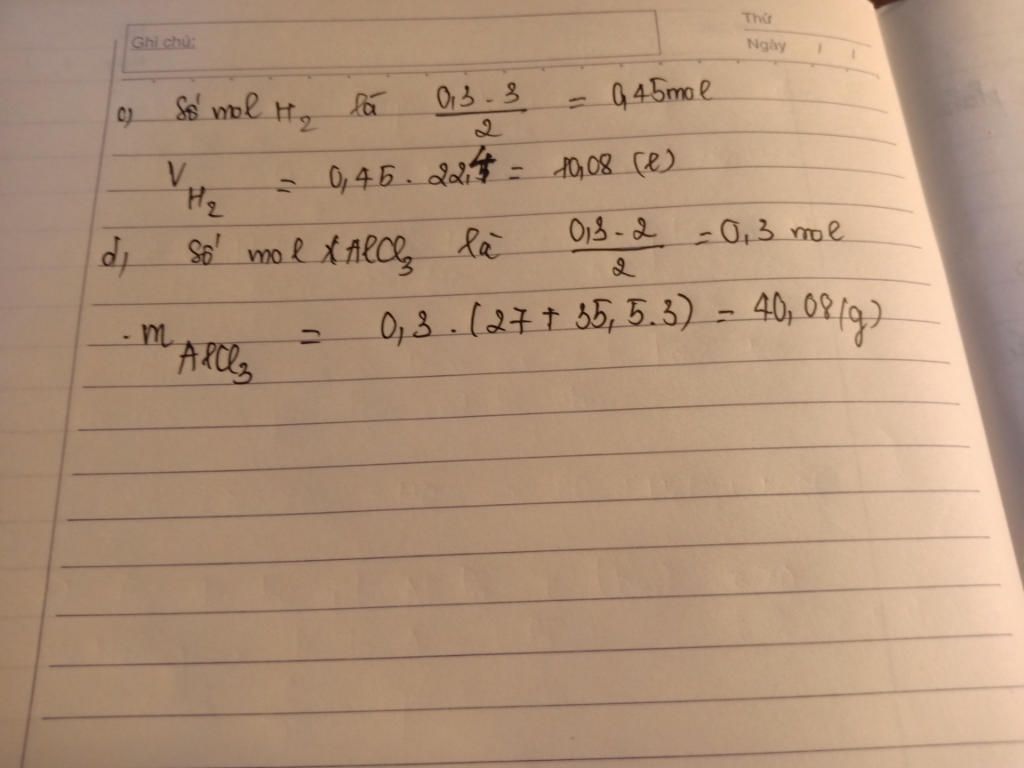 Thứ
Ghi chú:
Ngày / /
c, Số mol H2 là 0,3 - 3 / 2 = 0,45mol
V H2 = 0,45 . 22,4 = 10,08 (l)
d, Số mol AlCl3 là 0,3 - 2 / 2 = 0,3 mol
. m AlCl3 = 0,3 . (27 + 35,5.3) = 40,08 (g)